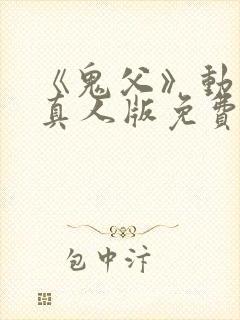 《鬼父》動
真人版免費
包中汴